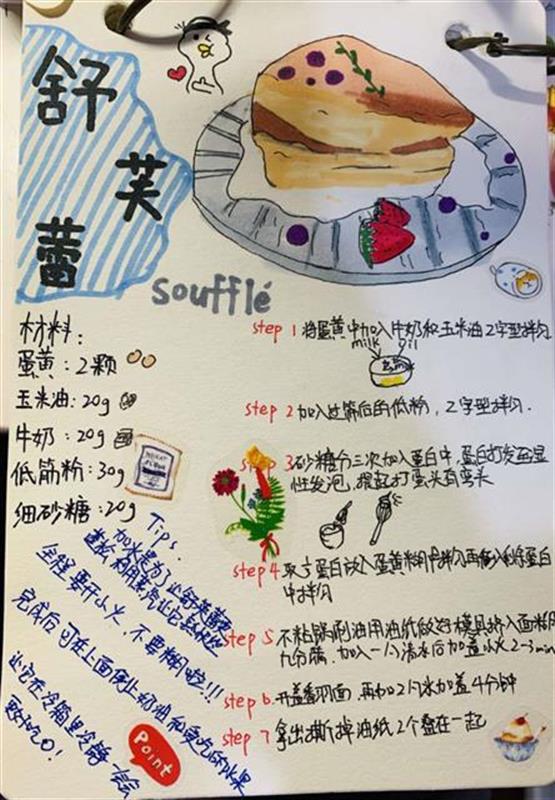 舒
芙
蕾
soufflé
材料:
蛋黄:2颗
玉米油:20g
牛奶:20g
低筋粉:30g
细砂糖:20g
step 1 将蛋黄中加入牛奶和玉米油Z字型拌匀
milk oil
step 2 加入过筛后的低粉,Z字型拌匀.
step 3 砂糖分三次加入蛋白中,蛋白打发至湿
性发泡,提起打蛋头有弯头
step 4 取⅓蛋白放入蛋黄糊中拌匀再倒入剩余蛋白
中拌匀
step 5 不粘锅刷油用油纸做好模具挤入面糊
九分满,加入一勺清水后加盖小火2-3min
step 6 开盖翻面,再加2勺水加盖4分钟
step 7 拿出撕掉油纸2个叠在一起
Tips.
加水是为了让舒芙蕾
全程要开小火,不要糊啦!!!
完成后可在上面便上奶油和爱吃的水果
让它在冷箱里冷静一会
更好吃哦!
Point